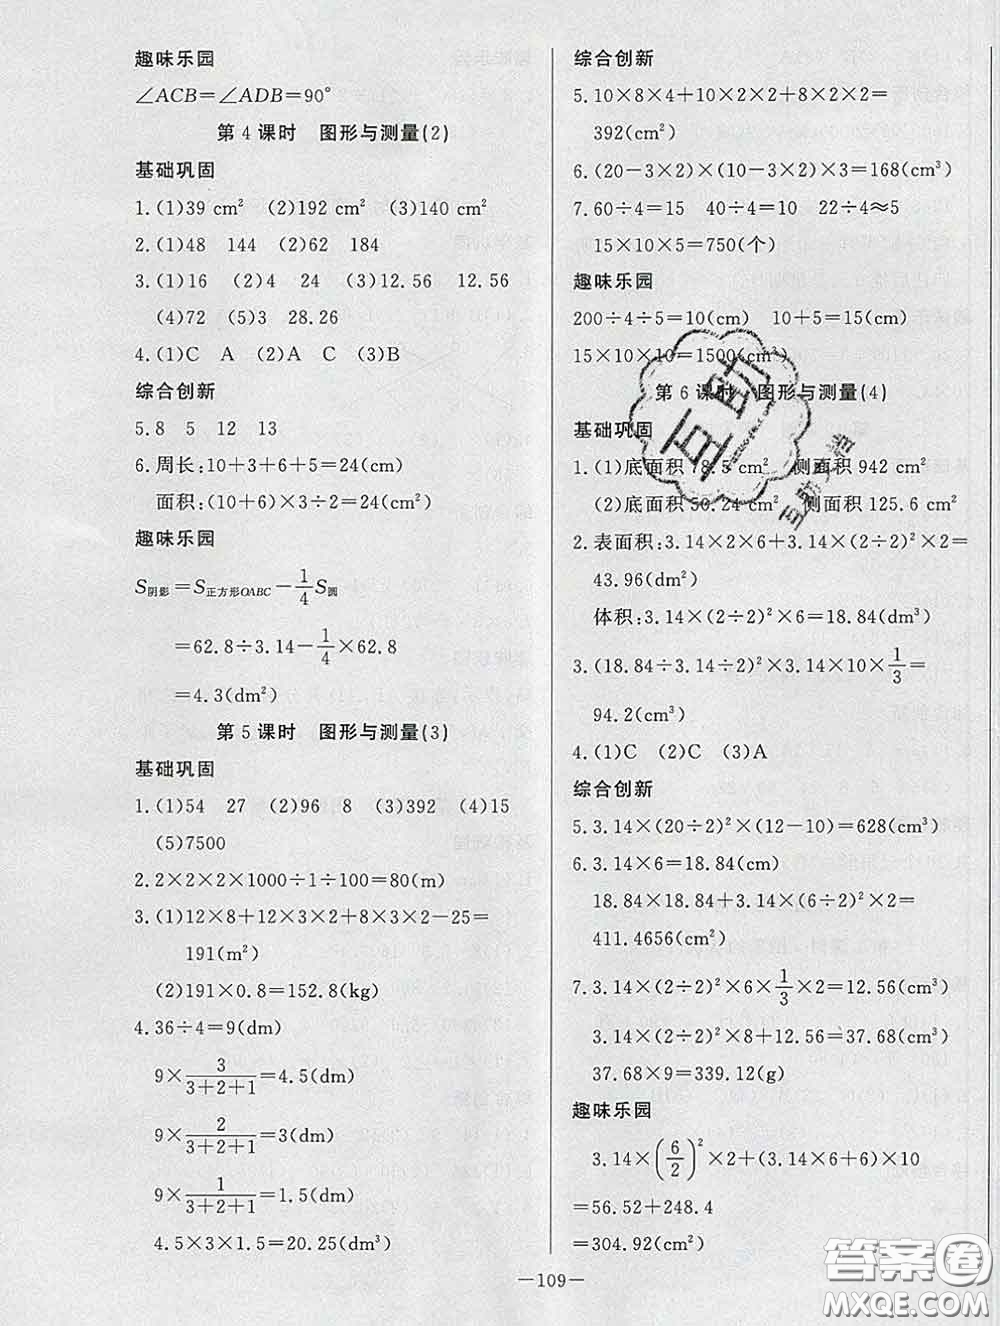 趣味乐园
∠ACB=∠ADB=90°
第4课时 图形与测量(2)
基础巩固
1.(1)39 cm² (2)192 cm² (3)140 cm²
2.(1)48 144 (2)62 184
3.(1)16 (2)4 24 (3)12.56 12.56
(4)72 (5)3 28.26
4.(1)C A (2)A C (3)B
综合创新
5.8 5 12 13
6.周长:10+3+6+5=24(cm)
面积:(10+6)×3÷2=24(cm²)
趣味乐园
S阴影=S正方形OABC−1/4S圆
=62.8÷3.14−1/4×62.8
=4.3(dm²)
第5课时 图形与测量(3)
基础巩固
1.(1)54 27 (2)96 8 (3)392 (4)15
(5)7500
2.2×2×2×1000÷1÷100=80(m)
3.(1)12×8+12×3×2+8×3×2−25=
191(m²)
(2)191×0.8=152.8(kg)
4.36÷4=9(dm)
9×3/(3+2+1)=4.5(dm)
9×2/(3+2+1)=3(dm)
9×1/(3+2+1)=1.5(dm)
4.5×3×1.5=20.25(dm³)
综合创新
5.10×8×4+10×2×2+8×2×2=
392(cm²)
6.(20−3×2)×(10−3×2)×3=168(cm³)
7.60÷4=15 40÷4=10 22÷4≈5
15×10×5=750(个)
趣味乐园
200÷4÷5=10(cm) 10+5=15(cm)
15×10×10=1500(cm³)
第6课时 图形与测量(4)
基础巩固
1.(1)底面积78.5 cm² 侧面积942 cm²
(2)底面积50.24 cm² 侧面积125.6 cm²
2.表面积:3.14×2×6+3.14×(2÷2)²×2=
43.96(dm²)
体积:3.14×(2÷2)²×6=18.84(dm³)
3.(18.84÷3.14÷2)²×3.14×10×1/3=
94.2(cm³)
4.(1)C (2)C (3)A
综合创新
5.3.14×(20÷2)²×(12−10)=628(cm³)
6.3.14×6=18.84(cm)
18.84×18.84+3.14×(6÷2)²×2=
411.4656(cm²)
7.3.14×(2÷2)²×6×1/3×2=12.56(cm³)
3.14×(2÷2)²×8+12.56=37.68(cm³)
37.68×9=339.12(g)
趣味乐园
3.14×(6/2)²×2+(3.14×6+6)×10
=56.52+248.4
=304.92(cm²)
—109—
互助
互助文档
答案圈
MXQE.COM